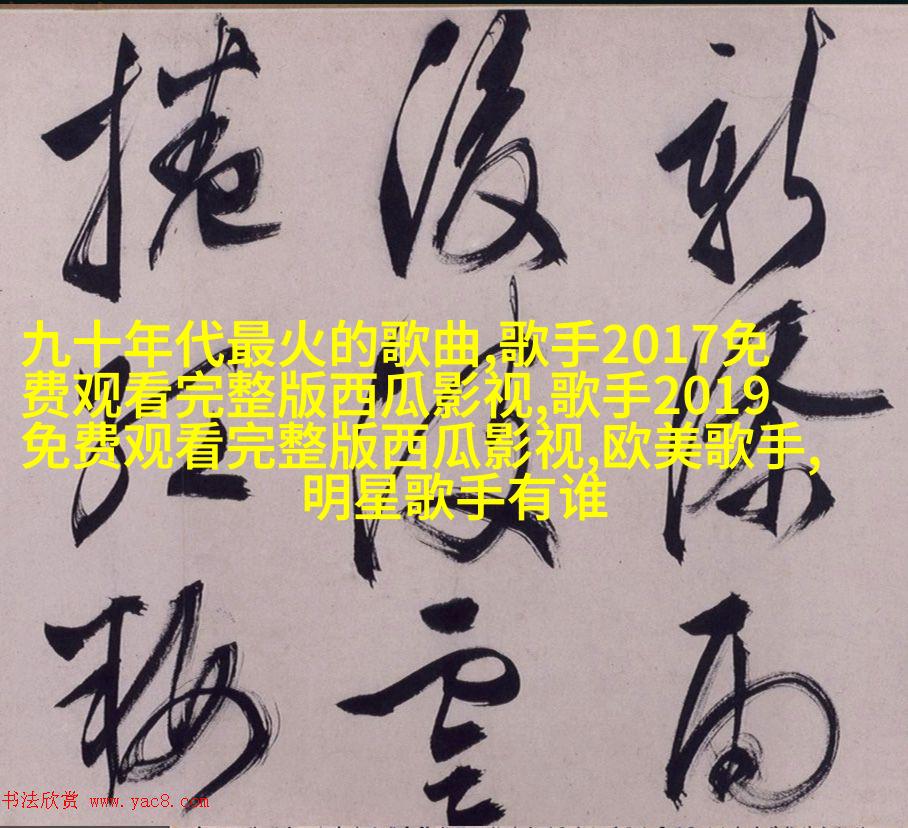 新 雨
雲
捲
九十年代最火的歌曲,歌手2017免
费观看完整版西瓜影视,歌手2019
免费观看完整版西瓜影视,欧美歌手,
明星歌手有谁
书法欣赏 www.yac8.com